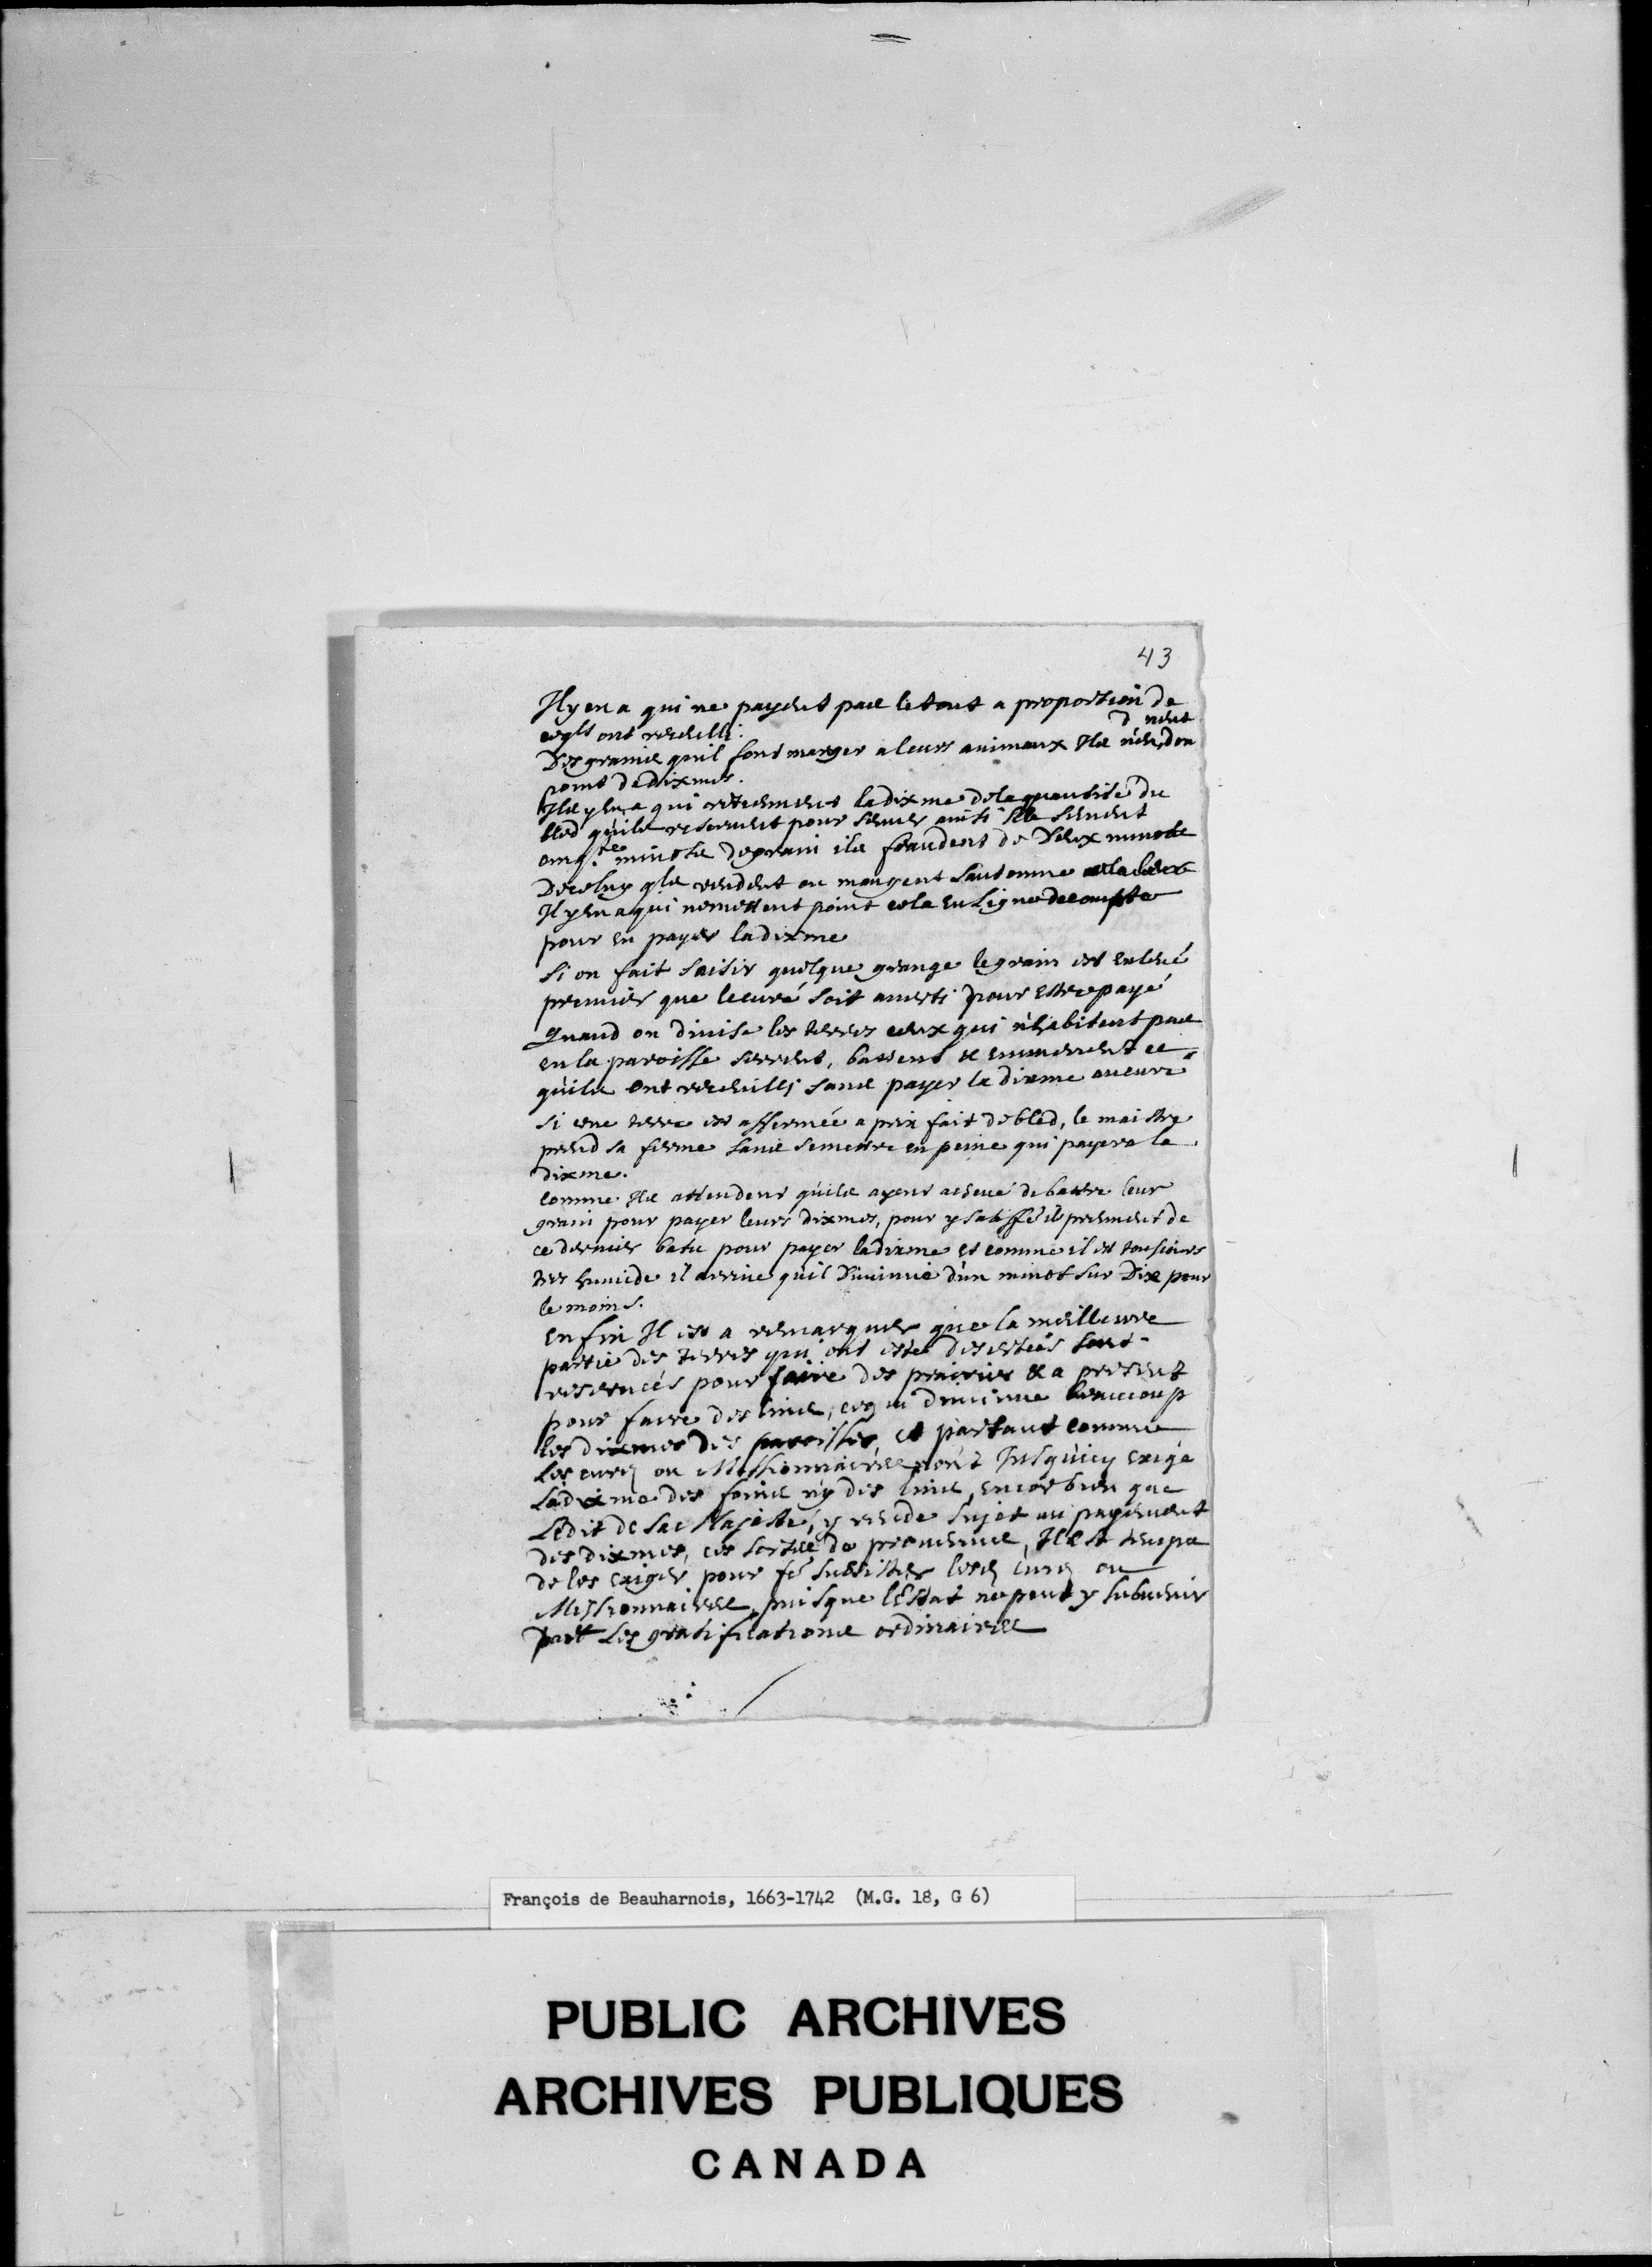 43
Il y en a qui ne payent pas le tout a proportion de
ce qls ont recueilli.
Des grains quil font manger a leurs animaux Ils n'en don
nent
point de dixmes.
Ils y en a qui retiennent la dixme de la quantité du
bled qu'ils reservent pour semer ainsi s'ils sement
cinq.te minots de grain ils fraudent de deux minots
De celuy qls vendent ou mangent l'automne
Il y en a qui ne mettent point cela en Ligne de compte
pour en payer la dixme
Si on fait saisir quelque grange le grain est enlevé
premier que le curé soit averti pour estre payé
Quand on divise les terres ceux qui n'habitent pas
en la paroisse serrent, battent et emmenent ce
qu'ils ont recueilli sans payer la dixme au curé
Si une terre est affermée a prix fait de bled, le maistre
prend sa ferme sans se mettre en peine qui payera la
dixme.
Comme Ils attendent qu'ils ayent achevé de battre leur
grain pour payer leurs dixmes, pour y satisffe ils prennent de
ce dernier batu pour payer la dixme et comme il est tousiours
tres humide il arrive qu'il diminue d'un minot sur Dix pour
le moins.
Enfin Il est a remarquer que la meilleure
partie des terres qui ont esté desertées sont
reservées pour faire des prairies & a present
pour faire des lins, ce qui diminue beaucoup
les dixmes des paroisses, et partant comme
Les curez ou Missionnaires n'ont Jusqu'icy exigé
La dixme des foins n'y des lins, encor bien que
L'édit de Sa Majesté, y rende sujet au payement
des dixmes, ces sortes de provenus, Il est temps
de les exiger pour fe subsister lesd. curez ou
Missionnaires, puisque l'Estat ne peut y subvenir
part Les gratifications ordinaires
François de Beauharnois, 1663-1742 (M.G. 18, G 6)
PUBLIC ARCHIVES
ARCHIVES PUBLIQUES
CANADA